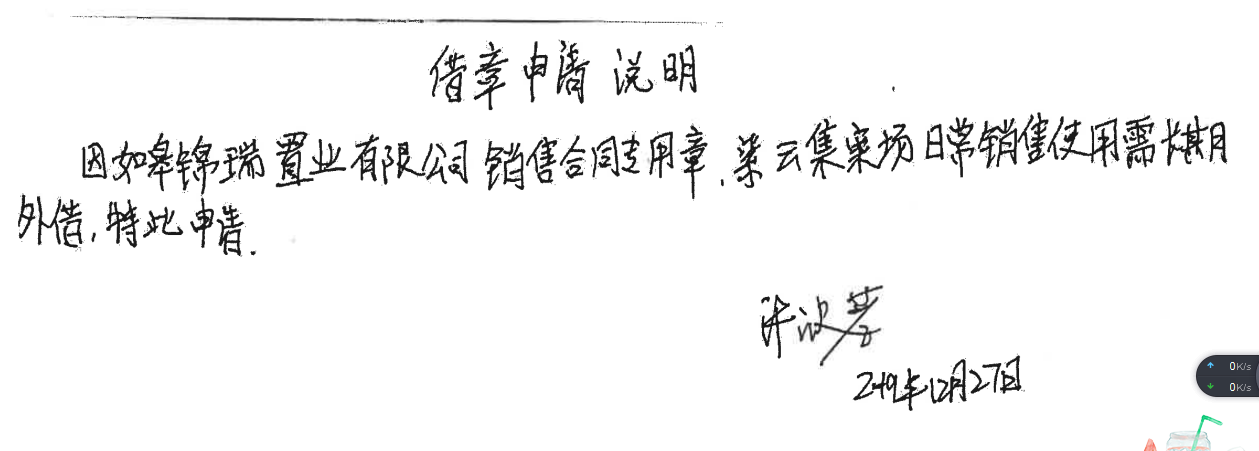 借章申请说明
因如皋锦瑞置业有限公司销售合同专用章,紫云集案场日常销售使用需长期
外借,特此申请.
2019年12月27日
0K/s
0K/s